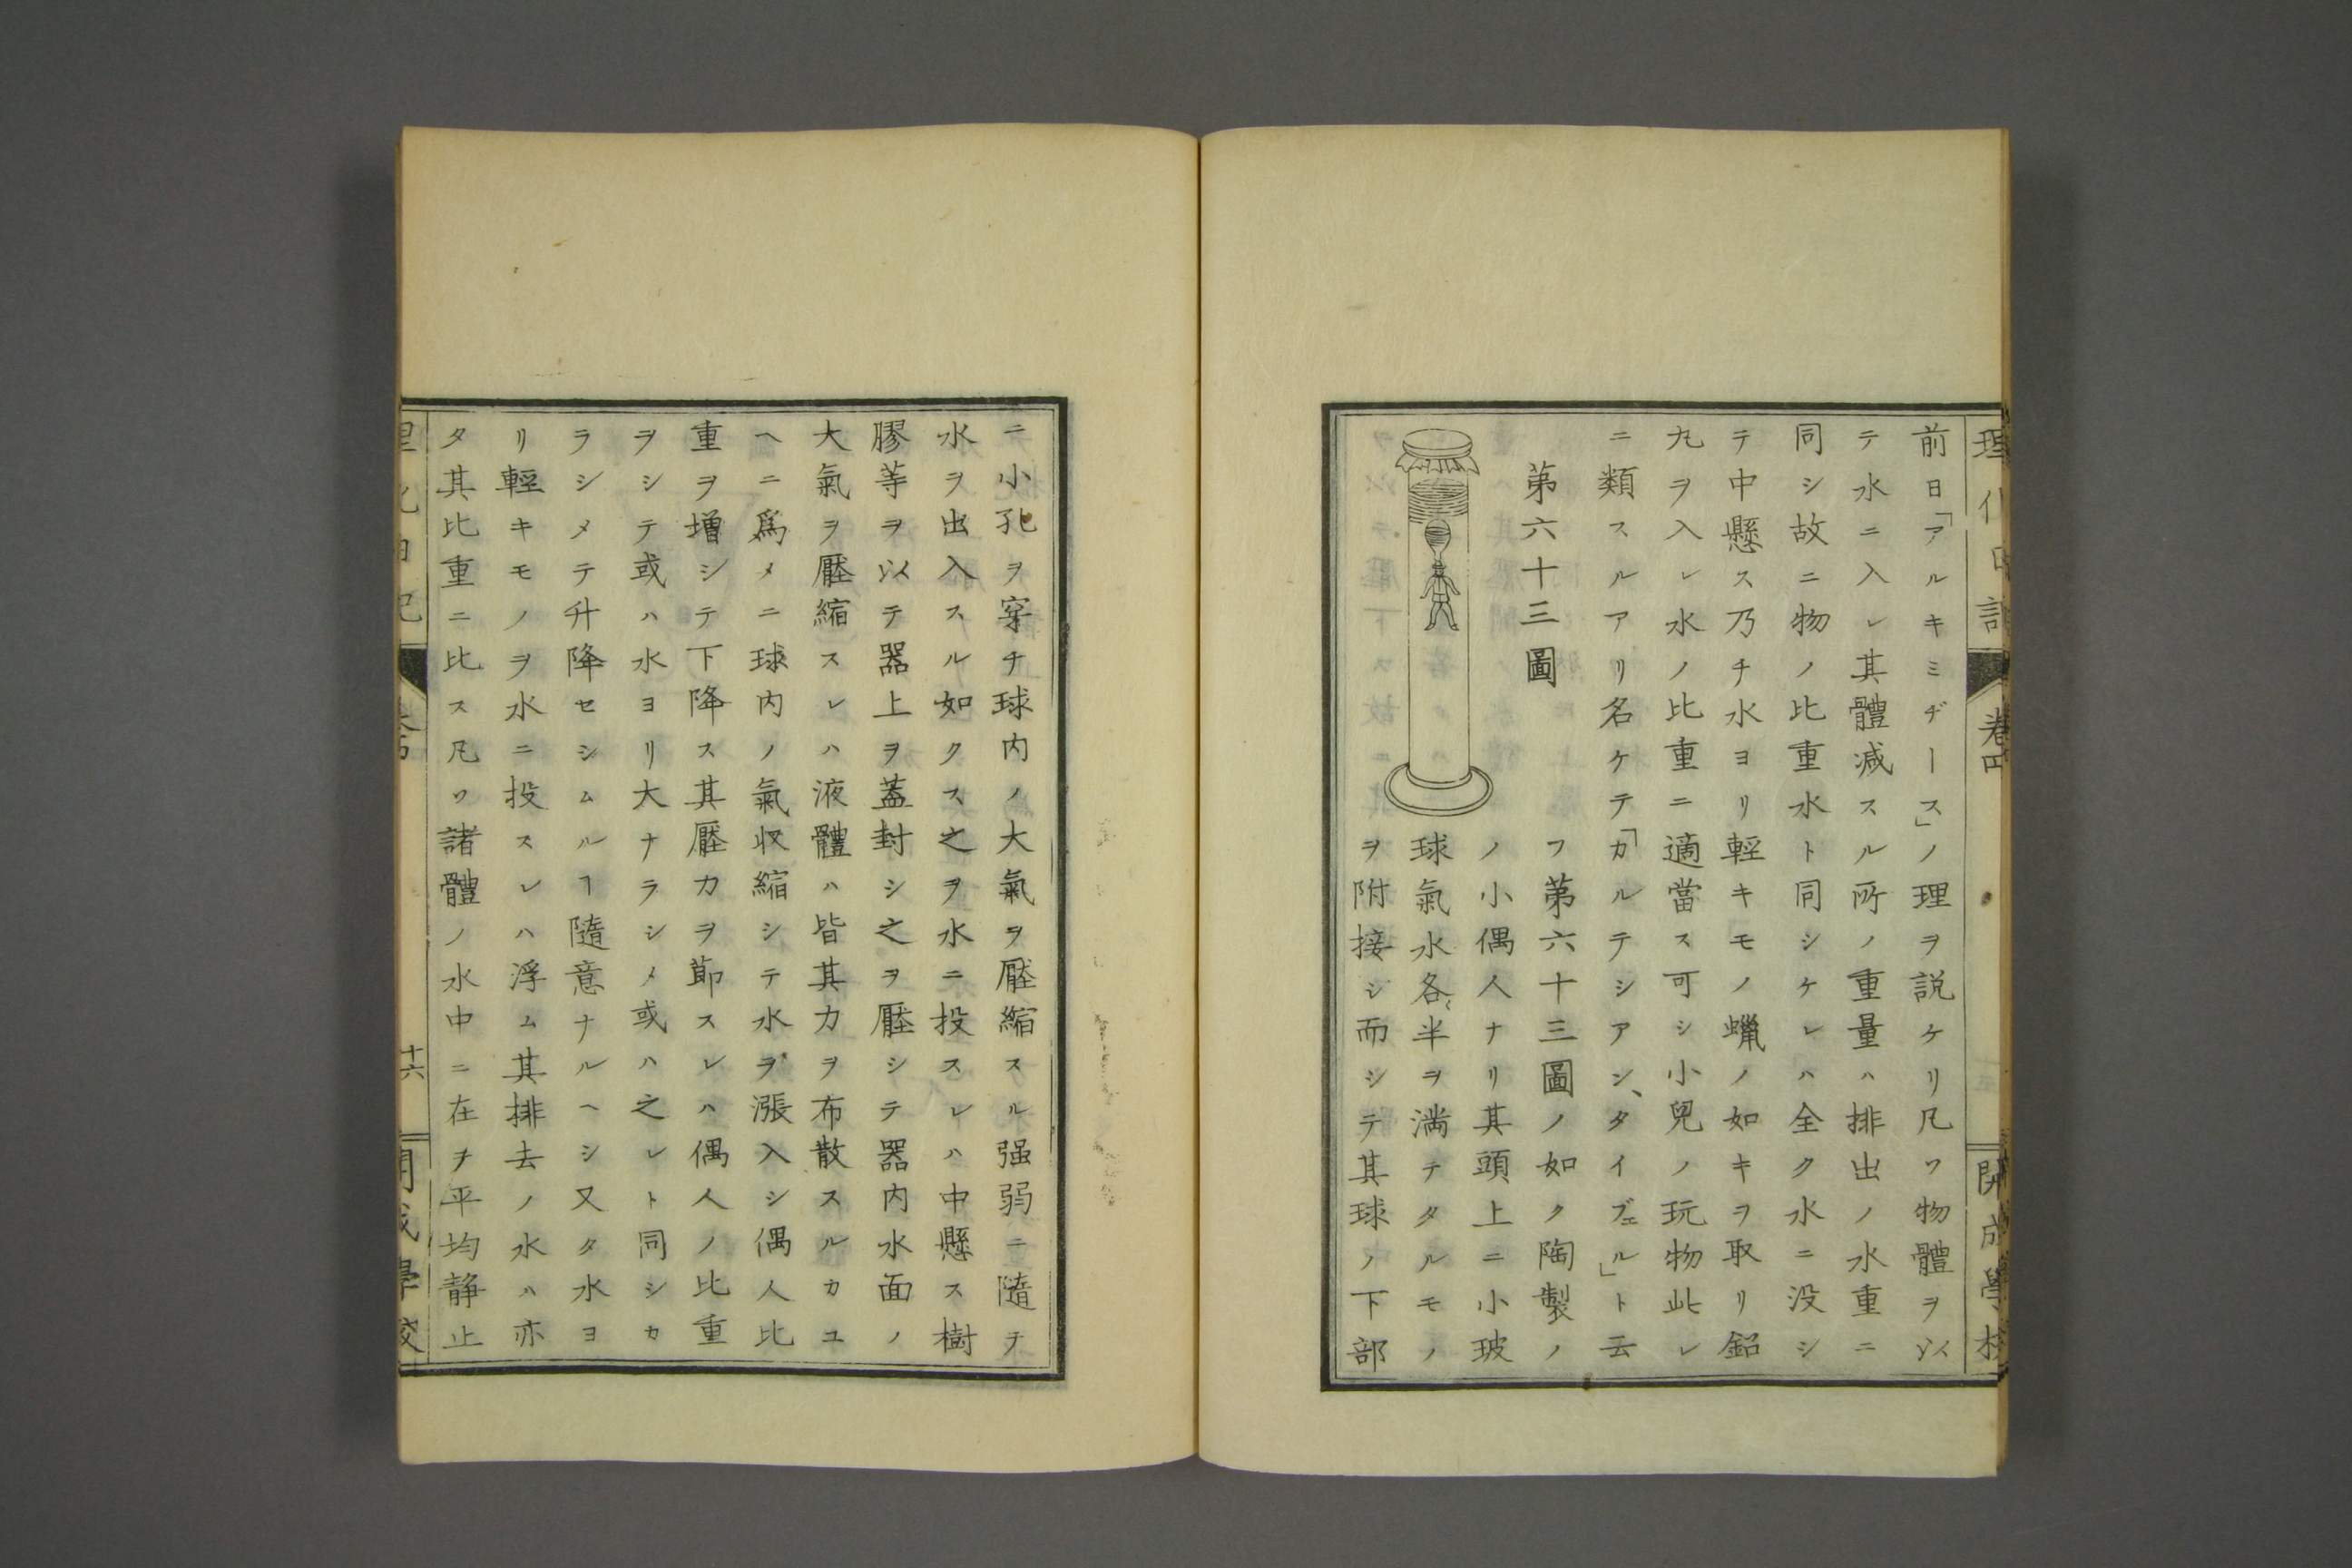 理化日記
卷四
開成學校
前日「アルキミヂース」ノ理ヲ説ケリ凡ソ物體ヲ以
テ水ニ入レ其體減スル所ノ重量ハ排出ノ水重ニ
同シ故ニ物ノ比重水ト同シケレハ全ク水ニ没シ
テ中懸ス乃チ水ヨリ輕キモノ蠟ノ如キヲ取リ鉛
丸ヲ入レ水ノ比重ニ適當ス可シ小兒ノ玩物此レ
ニ類スルアリ名ケテ「カルテシアン、タイブェル」ト云
第六十三圖
フ第六十三圖ノ如ク陶製ノ
ノ小偶人ナリ其頭上ニ小玻
球氣水各〻半ヲ満テタルモノ
ヲ附接シ而シテ其球ノ下部
ニ小孔ヲ穿チ球内ノ大氣ヲ壓縮スル强弱ニ隨テ
水ヲ出入スル如クス之ヲ水ニ投スレハ中懸ス樹
膠等ヲ以テ器上ヲ蓋封シ之ヲ壓シテ器内水面ノ
大氣ヲ壓縮スレハ液體ハ皆其力ヲ布散スルカユ
ヘニ爲メニ球内ノ氣収縮シテ水ヲ漲入シ偶人比
重ヲ增シテ下降ス其壓力ヲ節スレハ偶人ノ比重
ヲシテ或ハ水ヨリ大ナラシメ或ハ之レト同シカ
ラシメテ升降セシムルヿ隨意ナルヘシ又タ水ヨ
リ輕キモノヲ水ニ投スレハ浮ム其排去ノ水ハ亦
タ其比重ニ比ス凡ソ諸體ノ水中ニ在テ平均静止
十六